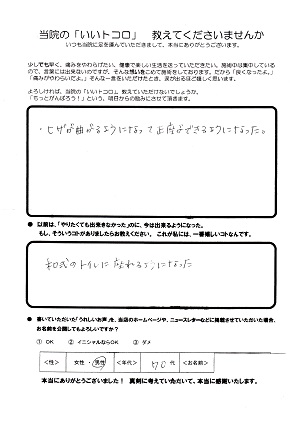 当院の「いいトコロ」 教えてくださいませんか
いつも当院に足を運んでいただきまして、本当にありがとうございます。
少しでも早く、痛みをやわらげたい。健康で楽しい生活を送っていただきたい。施術中は集中しているので、言葉には出来ないのですが、そんな想いをこめて施術をしております。だから「良くなったよ。」
「痛みがやわらいだよ。」そんな一言をいただけたとき、涙が出るほど嬉しく思います。
よろしければ、当院の「いいトコロ」、教えていただけないでしょうか。
「もっとがんばろう！」という、明日からの励みにさせて頂きます。
・ヒザが曲がるようになって正座ができるようになった。
● 以前は、「やりたくても出来きなかった」のに、今は出来るようになった。
もし、そういうコトがありましたらお教えください。これが私には、一番嬉しいコトなんです。
和式のトイレに座れるようになった
● 書いていただいた「うれしいお声」を、当店のホームページや、ニュースレターなどに掲載させていただいた場合、
お名前を公開してもよろしいですか？
① OK ② イニシャルならOK ③ ダメ
＜性＞ 女性 ・ 男性 ＜年代＞ 70 代 ＜お名前＞
本当にありがとうございました！ 真剣に考えていただいて、本当に感謝いたします。